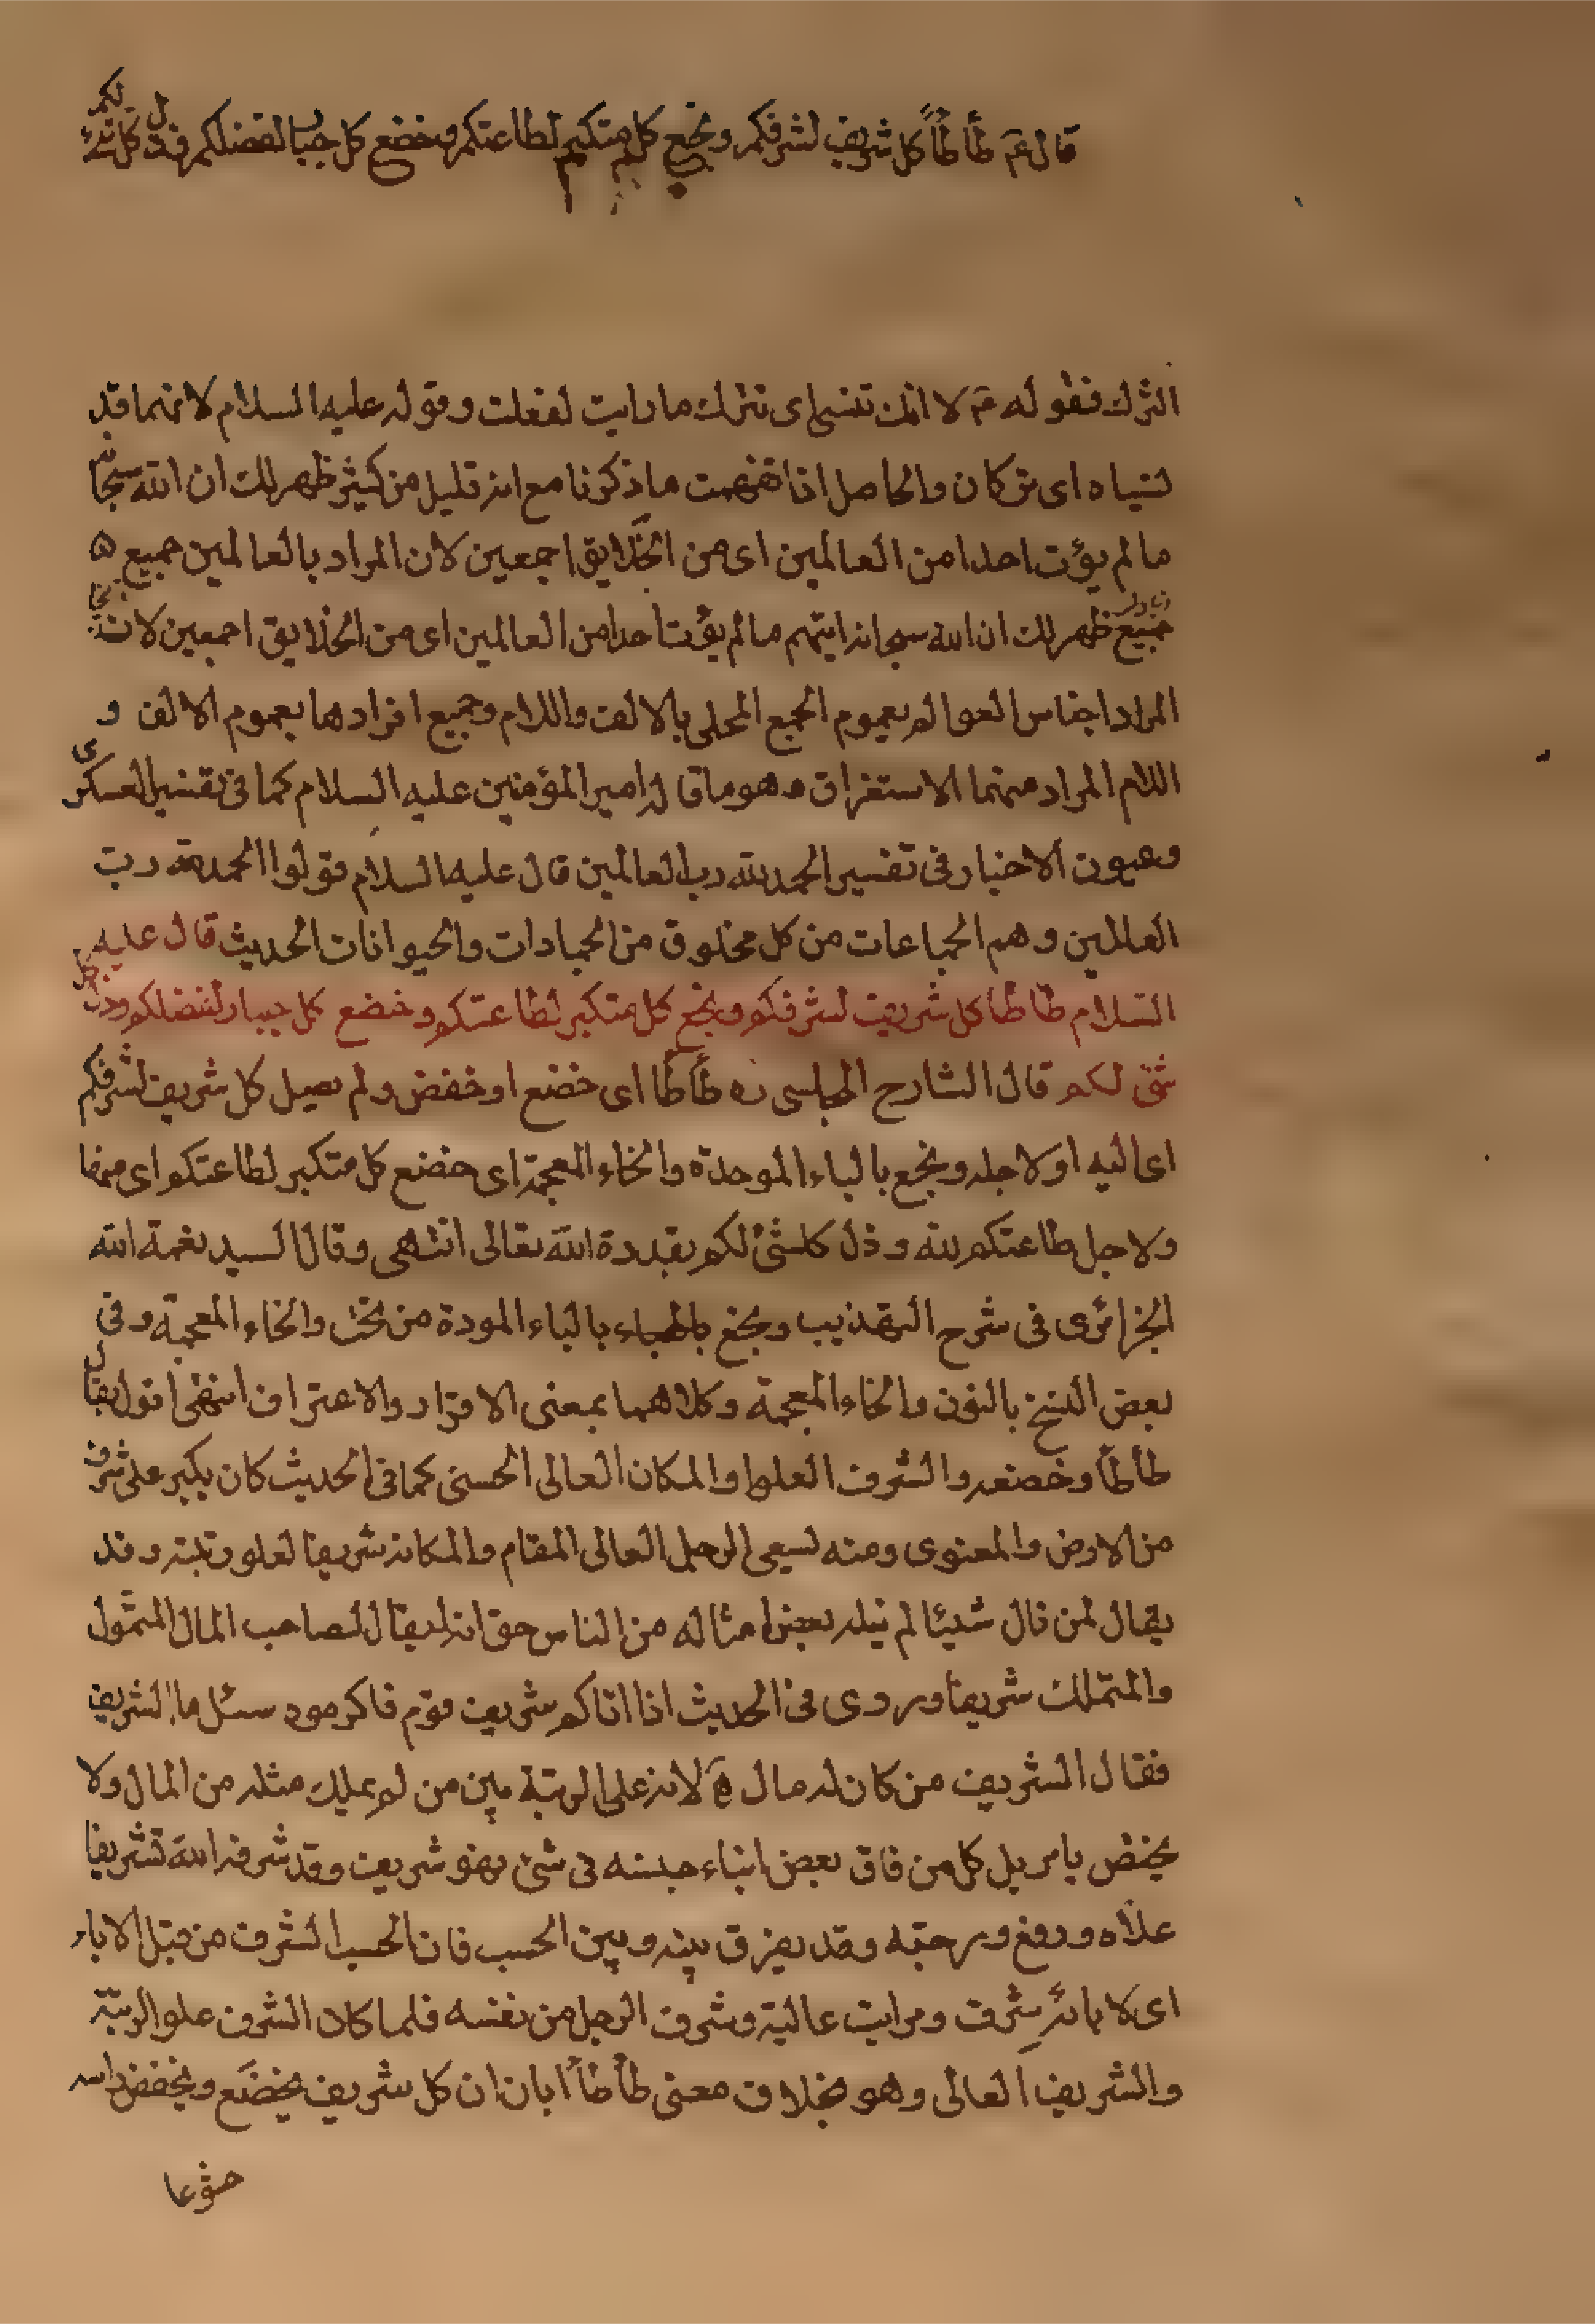 قال ع طأطأ كل شريف لشرفكم وبخع كل متكبر لطاعتكم وخضع كل جبار لفضلكم وذل كل شيء لكم
الترك فقوله ع لا انك تنسى اى تترك ما رايت لفعلت وقوله عليه السلام لانهما قد
نسياه اى تركان والحاصل اذا تفهمت ما ذكرنا مع انه قليل من كثير ظهر لك ان الله سبحانه
ما لم يؤت احدا من العالمين اى من الخلايق اجمعين لان المراد بالعالمين جميع
جميع ظهر لك ان الله سبحانه ايتهم ما لم يؤت احدا من العالمين اى من الخلايق اجمعين لان
المراد اجناس العوالم بعموم الجمع المحلى بالالف واللام وجميع افرادها بعموم الالف و
اللام المراد منهما الاستغراق وهو ما قاله امير المؤمنين عليه السلام كما في تفسير العسكرى
وعيون الاخبار في تفسير الحمد لله رب العالمين قال عليه السلام قولوا الحمد لله رب
العالمين وهم الجماعات من كل مخلوق من الجمادات والحيوانات الحديث قال عليه
السلام طاطا كل شريف لشرفكم وبخع كل متكبر لطاعتكم وخضع كل جبار لفضلكم وذل كل
شئ لكم قال الشارح المجلسى ره طأطأ اى خضع او خفض ولم يصل كل شريف لشرفكم
اى اليه او لاجله وبخع بالباء الموحدة والخاء المعجمة اى خضع كل متكبر لطاعتكم اى
ولاجل طاعتكم لله وذل كل شئ لكم بقدرة الله تعالى انتهى وقال السيد نعمة الله
الجزائرى في شرح التهذيب وبخع بالباء المودة من تحت والخاء المعجمة وفي
بعض النسخ بالنون والخاء المعجمة وكلاهما بمعنى الاقرار والاعتراف انتهى اقول يقال
طأطأ وخضعه والشرف العلو او المكان العالى الحسنى كما في الحديث كان يكبر على شرف
من الارض والمعنوى ومنه يسمى الرجل العالى المقام والمكانة شريفا لعلو رتبته وقد
يقال لمن نال شيئا لم ينله بعض امثاله من الناس حتى انه ليقال لصاحب المال المتمول
والمتملك شريفا وروى في الحديث اذا اتاكم شريف قوم فاكرموه سئل ما الشريف
فقال الشريف من كان له مال لانه على الرتبة بين من لم يملك مثله من المال ولا
يختص بامر بل كل من فاق بعض ابناء جنسه في شئ فهو شريف وقد شرفه الله تشريفا
علاه ورفع ورحبه وقد يفرق بينه وبين الحسب فان الحسب الشرف من قبل الاباء
اى لابائه شرف ومراتب عالية وشرف الرجل من نفسه فلما كان الشرف علو الرتبة
والشريف العالى وهو بخلاف معنى طأطأ ابان ان كل شريف يخضع ويخفض راسه